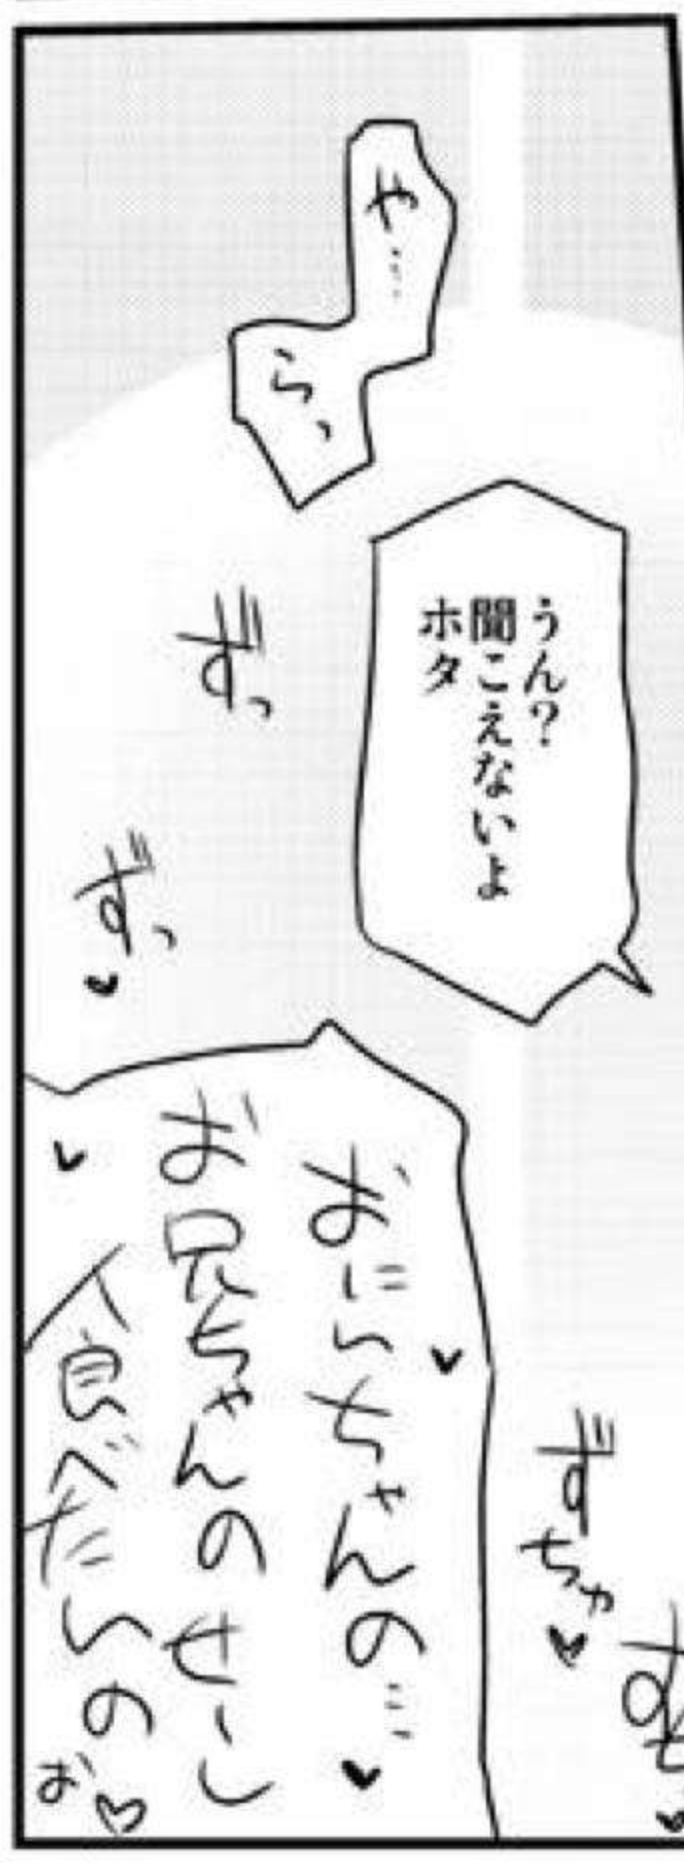 や…
らっ
うん?
聞こえないよ
ホタ
ずっ
ずっ♥
おにぃちゃんの…♥
お兄ちゃんのせーし
食べたいのぉ♡
ずちゃ♥